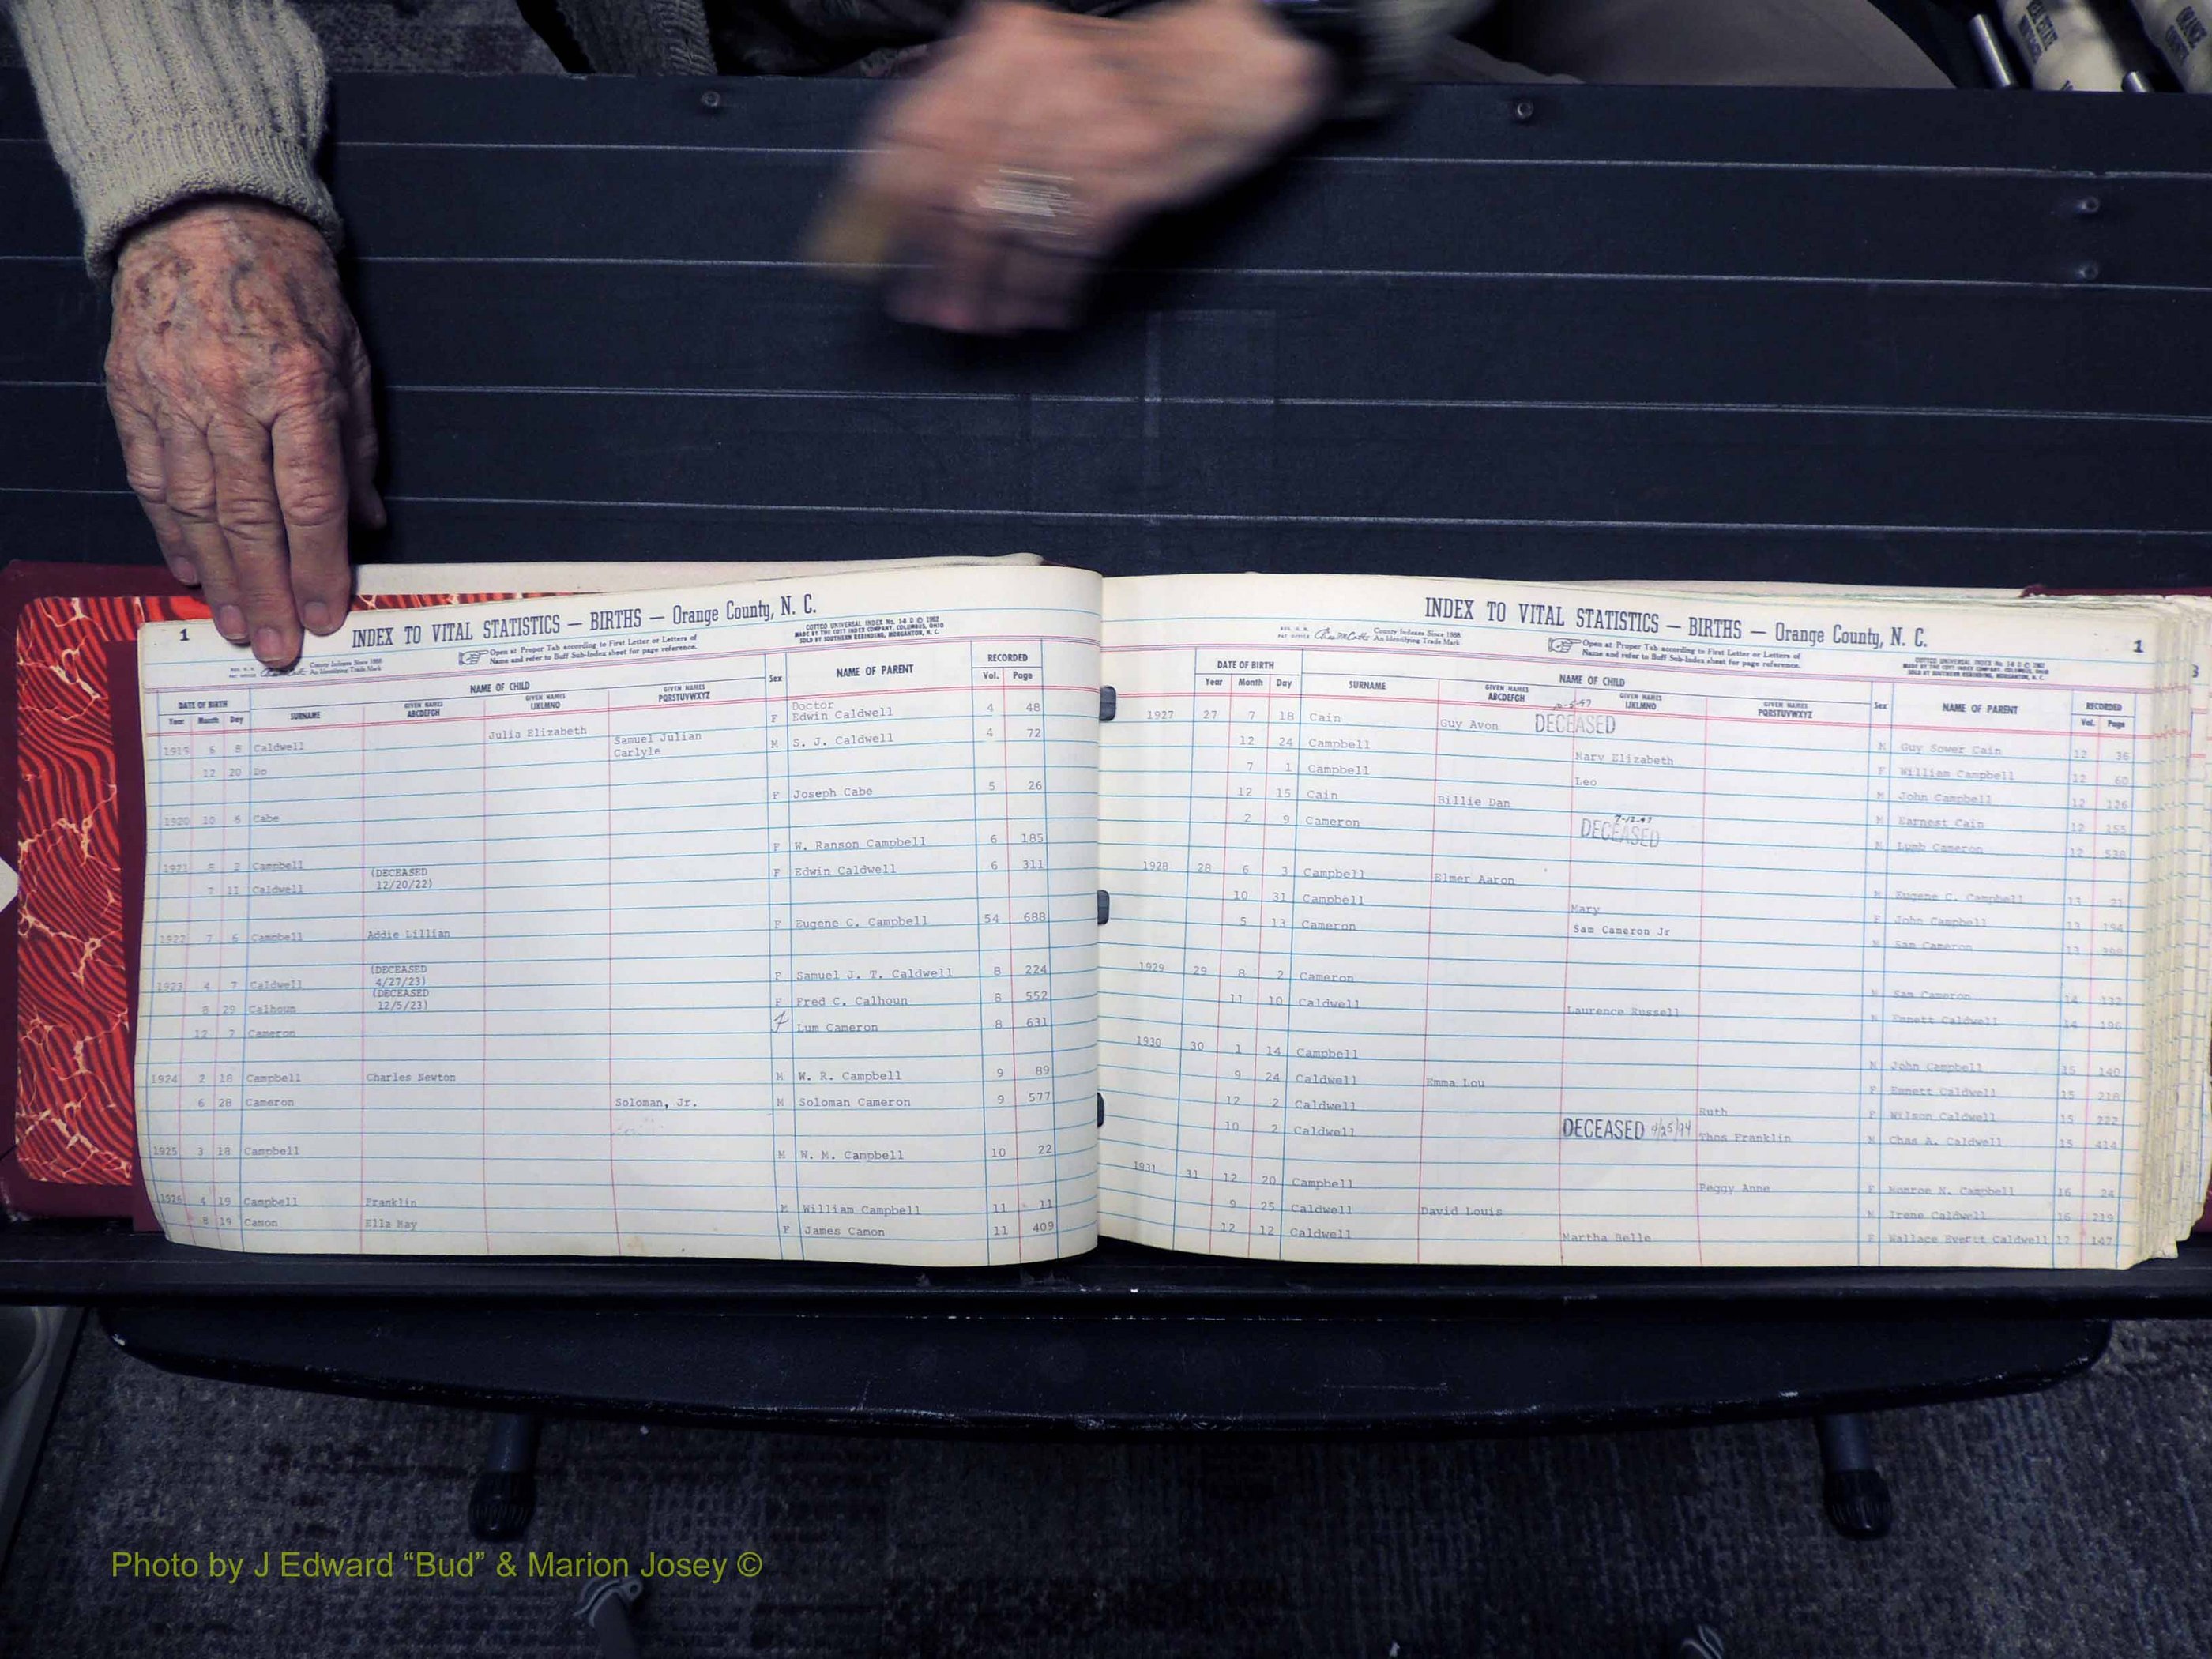 REAL ESTATE
ORANGE COUNTY
1
INDEX TO VITAL STATISTICS — BIRTHS — Orange County, N. C.
County Indexes Since 1888
An Identifying Trade Mark
Open at Proper Tab according to First Letter or Letters of
Name and refer to Buff Sub-Index sheet for page reference.
COTTCO UNIVERSAL INDEX No. 14 D © 1962
MADE BY THE COTT INDEX COMPANY, COLUMBUS, OHIO
SOLD BY SOUTHERN REBINDING, MORGANTON, N. C.
DATE OF BIRTH NAME OF CHILD Sex NAME OF PARENT RECORDED
Year Month Day SURNAME GIVEN NAMES ABCDEFGH GIVEN NAMES IJKLMNO GIVEN NAMES PQRSTUVWXYZ Vol. Page
1919 6 8 Caldwell Julia Elizabeth F Doctor Edwin Caldwell 4 48
12 20 Do Samuel Julian Carlyle M S. J. Caldwell 4 72
1920 10 6 Cabe F Joseph Cabe 5 26
1921 5 2 Campbell F W. Ranson Campbell 6 185
7 11 Caldwell (DECEASED 12/20/22) F Edwin Caldwell 6 311
1922 7 6 Campbell Addie Lillian F Eugene C. Campbell 54 688
1923 4 7 Caldwell (DECEASED 4/27/23) F Samuel J. T. Caldwell 8 224
8 29 Calhoun (DECEASED 12/5/23) F Fred C. Calhoun 8 552
12 7 Cameron F Lum Cameron 8 631
1924 2 18 Campbell Charles Newton M W. R. Campbell 9 89
6 28 Cameron Soloman, Jr. M Soloman Cameron 9 577
1925 3 18 Campbell M W. M. Campbell 10 22
1926 4 19 Campbell Franklin M William Campbell 11 11
8 19 Camon Ella May F James Camon 11 409
INDEX TO VITAL STATISTICS — BIRTHS — Orange County, N. C.
1
County Indexes Since 1888
An Identifying Trade Mark
Open at Proper Tab according to First Letter or Letters of
Name and refer to Buff Sub-Index sheet for page reference.
COTTCO UNIVERSAL INDEX No. 14 D © 1962
MADE BY THE COTT INDEX COMPANY, COLUMBUS, OHIO
SOLD BY SOUTHERN REBINDING, MORGANTON, N. C.
DATE OF BIRTH NAME OF CHILD Sex NAME OF PARENT RECORDED
Year Month Day SURNAME GIVEN NAMES ABCDEFGH GIVEN NAMES IJKLMNO GIVEN NAMES PQRSTUVWXYZ Vol. Page
1927 27 7 18 Cain Guy Avon DECEASED M Guy Sower Cain 12 36
12 24 Campbell Mary Elizabeth F William Campbell 12 60
7 1 Campbell Leo M John Campbell 12 126
12 15 Cain Billie Dan M Earnest Cain 12 155
2 9 Cameron DECEASED 7-12-47 M Lumb Cameron 12
1928 28 6 3 Campbell Elmer Aaron M Eugene C. Campbell 13 21
10 31 Campbell Mary F John Campbell 13 194
5 13 Cameron Sam Cameron Jr M Sam Cameron 13
1929 29 8 2 Cameron M Sam Cameron 14 132
11 10 Caldwell Laurence Russell M Emnett Caldwell 14 196
1930 30 1 14 Campbell M John Campbell 15 140
9 24 Caldwell Emma Lou F Emnett Caldwell 15 218
12 2 Caldwell Ruth F Wilson Caldwell 15 222
10 2 Caldwell DECEASED 4/25/94 Thos Franklin M Chas A. Caldwell 15 414
1931 31 12 20 Campbell Peggy Anne F Monroe N. Campbell 16 24
9 25 Caldwell David Louis M Irene Caldwell 16 219
12 12 Caldwell Martha Belle F Wallace Evertt Caldwell 17 147
Photo by J Edward “Bud” & Marion Josey ©